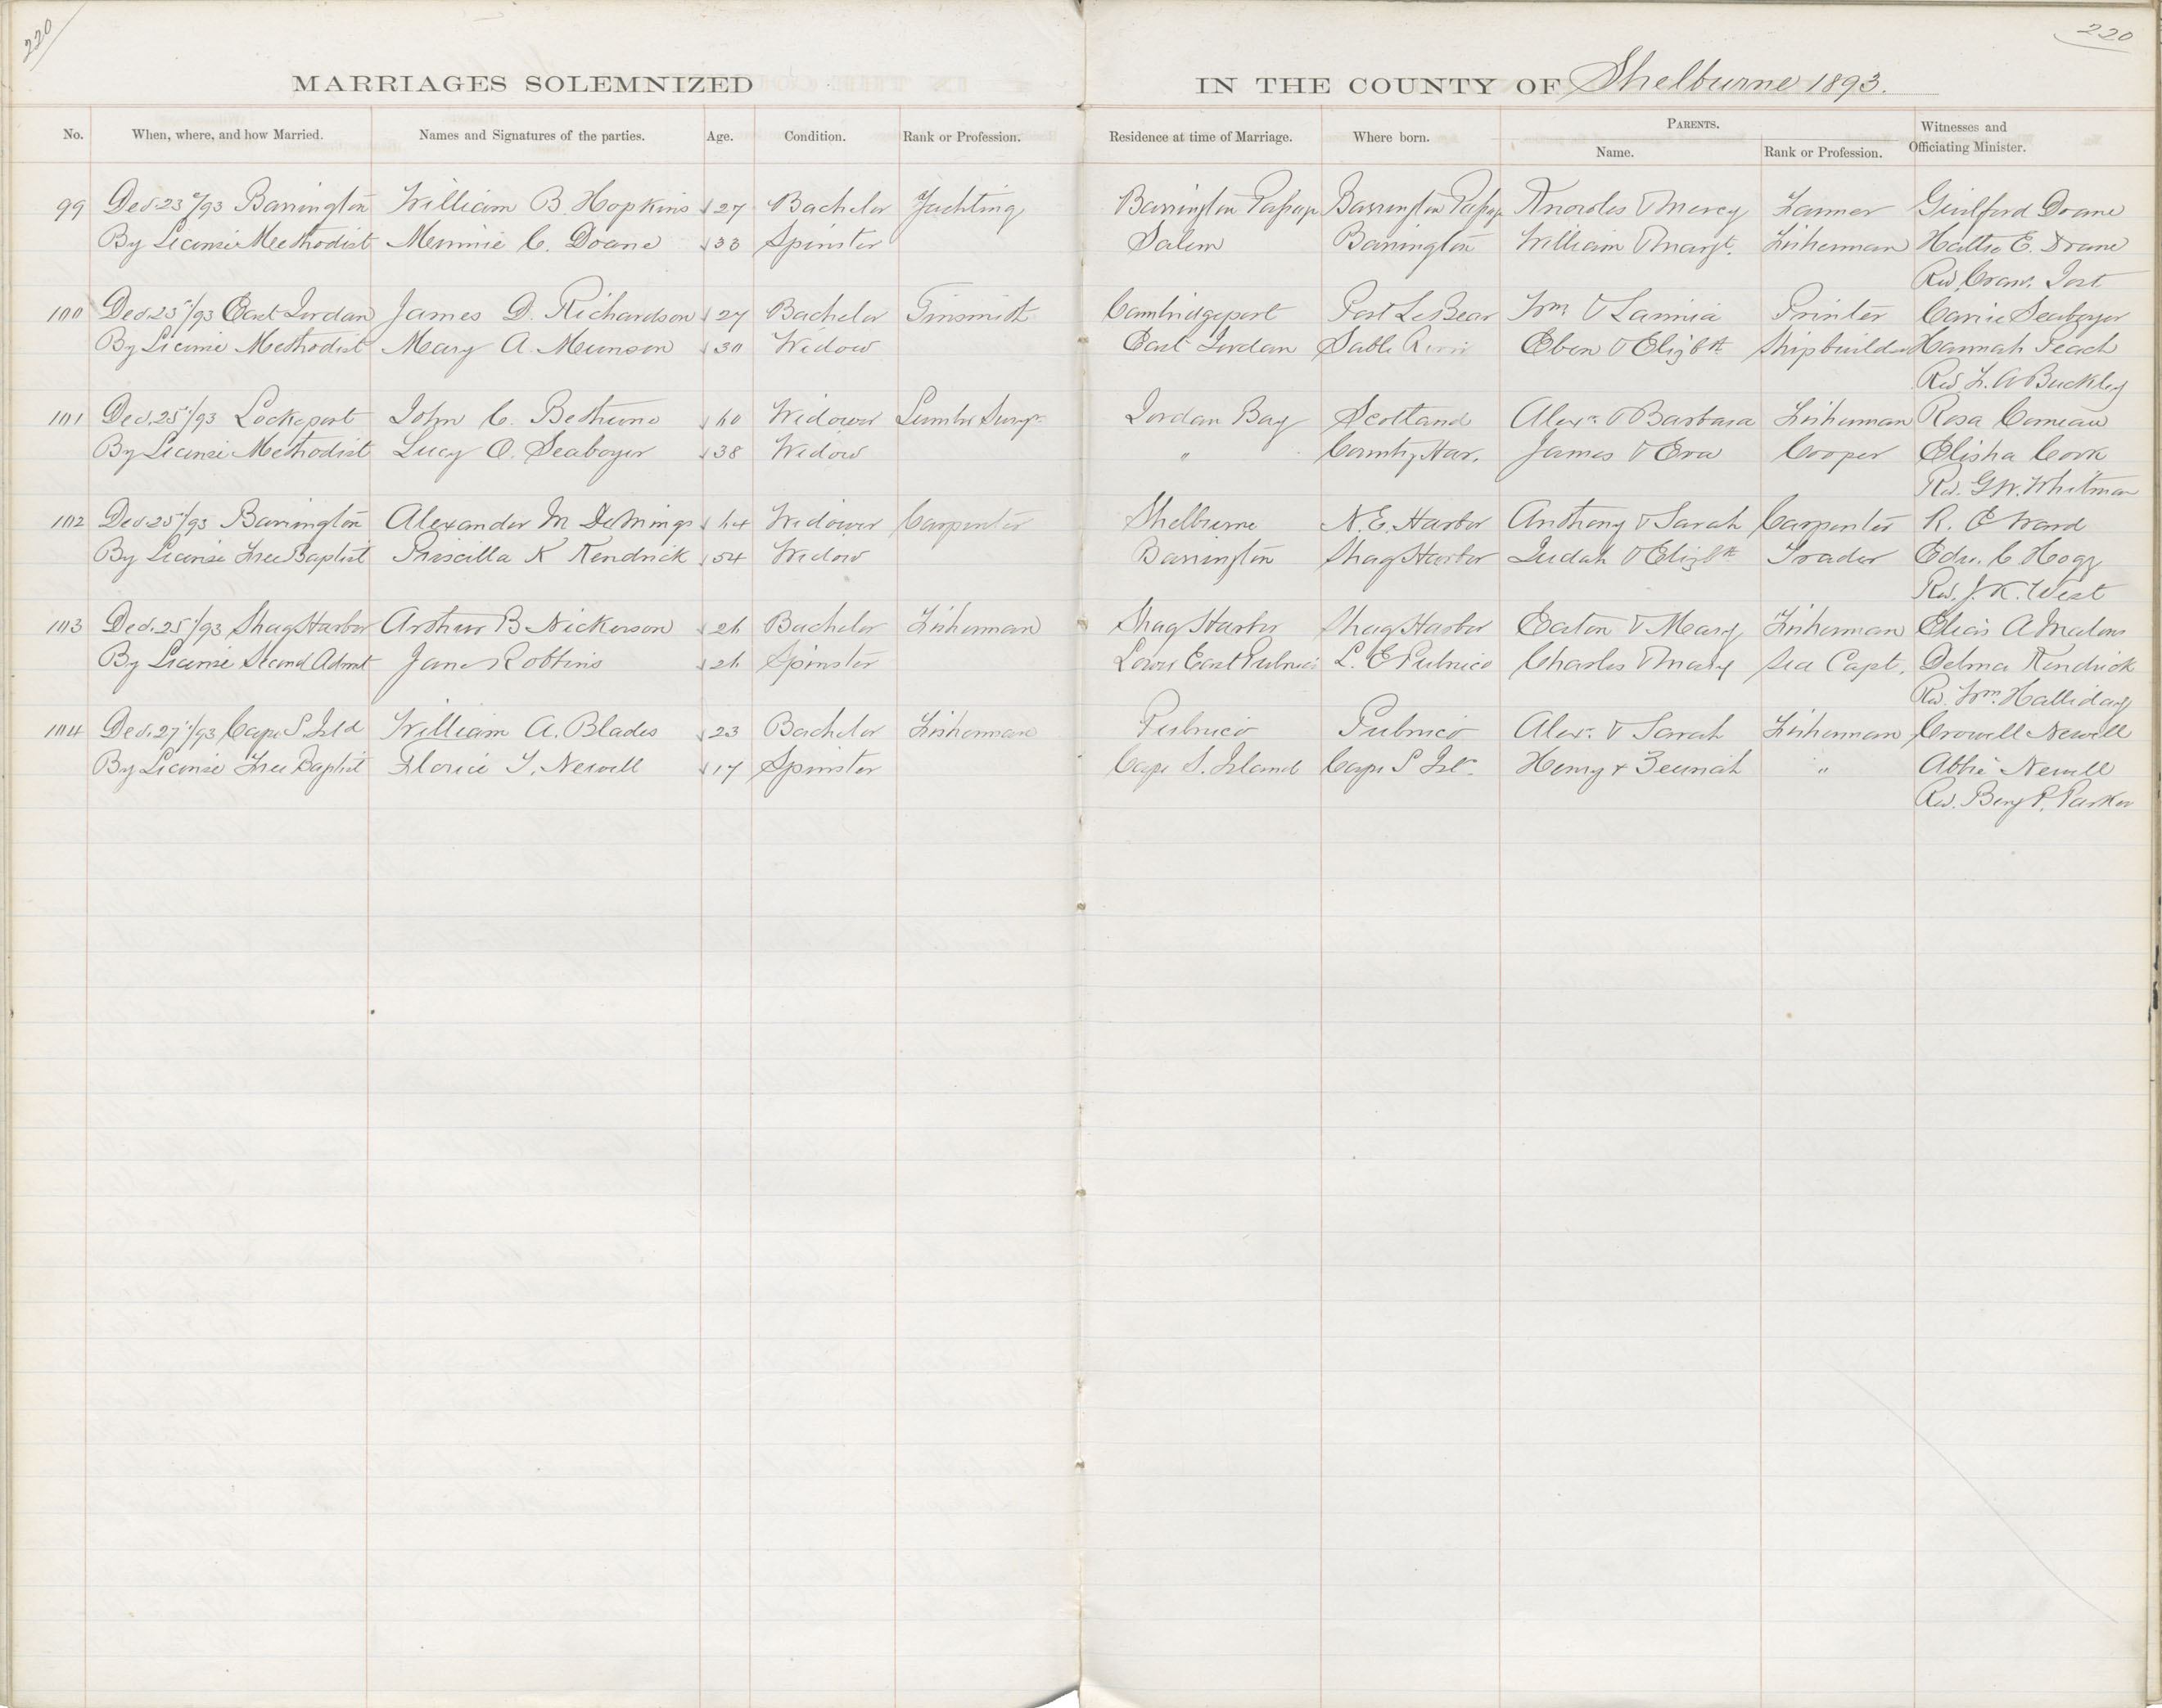 220
220
MARRIAGES SOLEMNIZED IN THE COUNTY OF Shelburne 1893.
No. When, where, and how Married. Names and Signatures of the parties. Age. Condition. Rank or Profession. Residence at time of Marriage. Where born. PARENTS. Name. Rank or Profession. Witnesses and Officiating Minister.
99 Dec. 23"/93 Barrington William B. Hopkins 27 Bachelor Yachting Barrington Passage Barrington Passage Knowles & Mercy Farmer Guilford Doane
By License Methodist Minnie C. Doane 33 Spinster Salem Barrington William & Margt. Fisherman Hattie E. Doane
Rev. Jost
100 Dec. 25"/93 East Jordan James D. Richardson 27 Bachelor Tinsmith Cambridgeport Port LeBear Wm. & Lavinia Printer Carrie Seaboyer
By License Methodist Mary A. Munson 30 Widow East Jordan Sable River Eben & Elizbth Shipbuilder Hannah Peach
Rev. F. A Buckley
101 Dec. 25"/93 Lockeport John C. Bethune 60 Widower Lumber Survyr Jordan Bay Scotland Alexr. & Barbara Fisherman Rosa Comeau
By License Methodist Lucy O. Seaboyer 38 Widow " Country Har. James & Eva Cooper Elisha Cook
Rev. G.W. Whitman
102 Dec. 25"/93 Barrington Alexander M DeMings 64 Widower Carpenter Shelburne N.E. Harbor Anthony & Sarah Carpenter R. Ward
By License Free Baptist Priscilla K Kendrick 54 Widow Barrington Shag Harbor Judah & Elizbth Trader Edw. C Hogg
Rev. J. K. West
103 Dec. 25"/93 Shag Harbor Arthur B Nickerson 26 Bachelor Fisherman Shag Harbor Shag Harbor Eaton & Mary Fisherman Elias A
By License Second Advnt Jane Robbins 26 Spinster Lower East Pubnico L. E Pubnico Charles & Mary Sea Capt. Delma Kendrick
Rev. Wm. Halliday
104 Dec. 27"/93 Cape S. Isld William A. Blades 23 Bachelor Fisherman Pubnico Pubnico Alex. & Sarah Fisherman Crowell Newell
By License Free Baptist Florice Y. Newell 17 Spinster Cape S. Island Cape S Isl. Henry & Zeuriah " Abbie Newell
Rev. Benj P. Parker